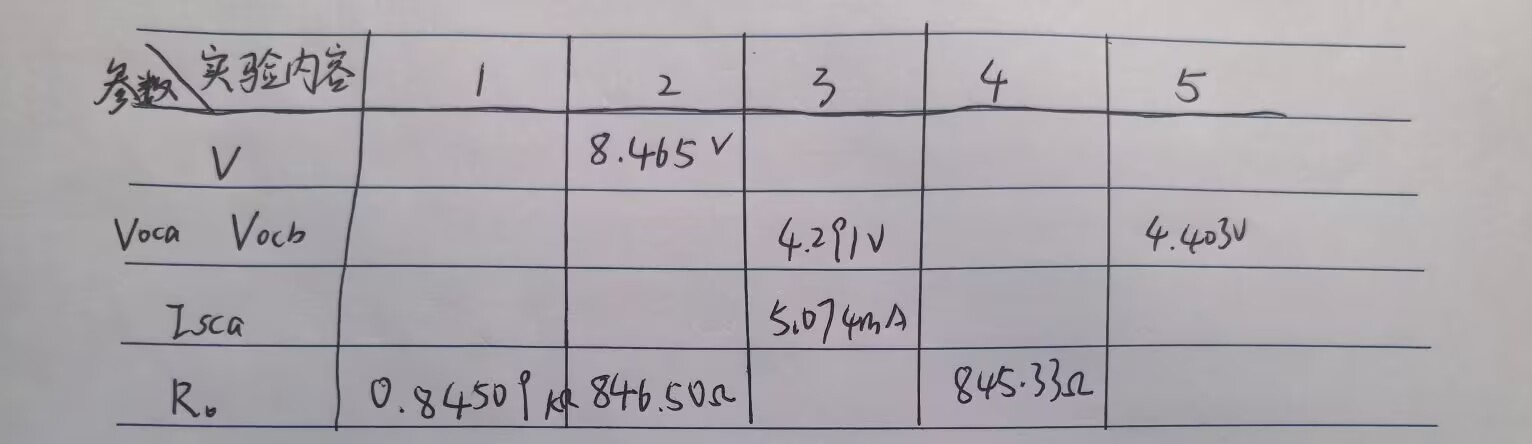 参数 实验内容 1 2 3 4 5
V 8.465 V
Voca Vocb 4.291V 4.403V
Isca 5.074mA
R₀ 0.84509 KΩ 846.50Ω 845.33Ω